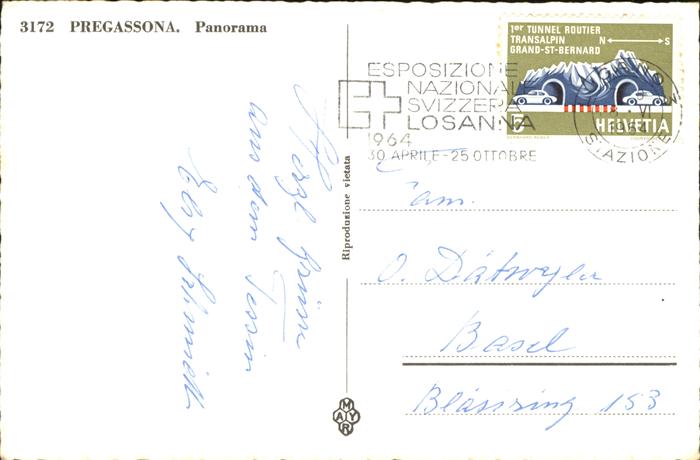 3172 PREGASSONA. Panorama
Herzl. Grüsse
aus dem Tessin
Elsy Schmidt
Riproduzione vietata
MAYR
1er TUNNEL ROUTIER
TRANSALPIN N S
GRAND-ST-BERNARD
5 HELVETIA
ESPOSIZIONE
NAZIONALE
SVIZZERA
LOSANNA
1964
30 APRILE - 25 OTTOBRE
STAZIONE
Fam.
O. Dätwyler
Basel
Bläsiring 153